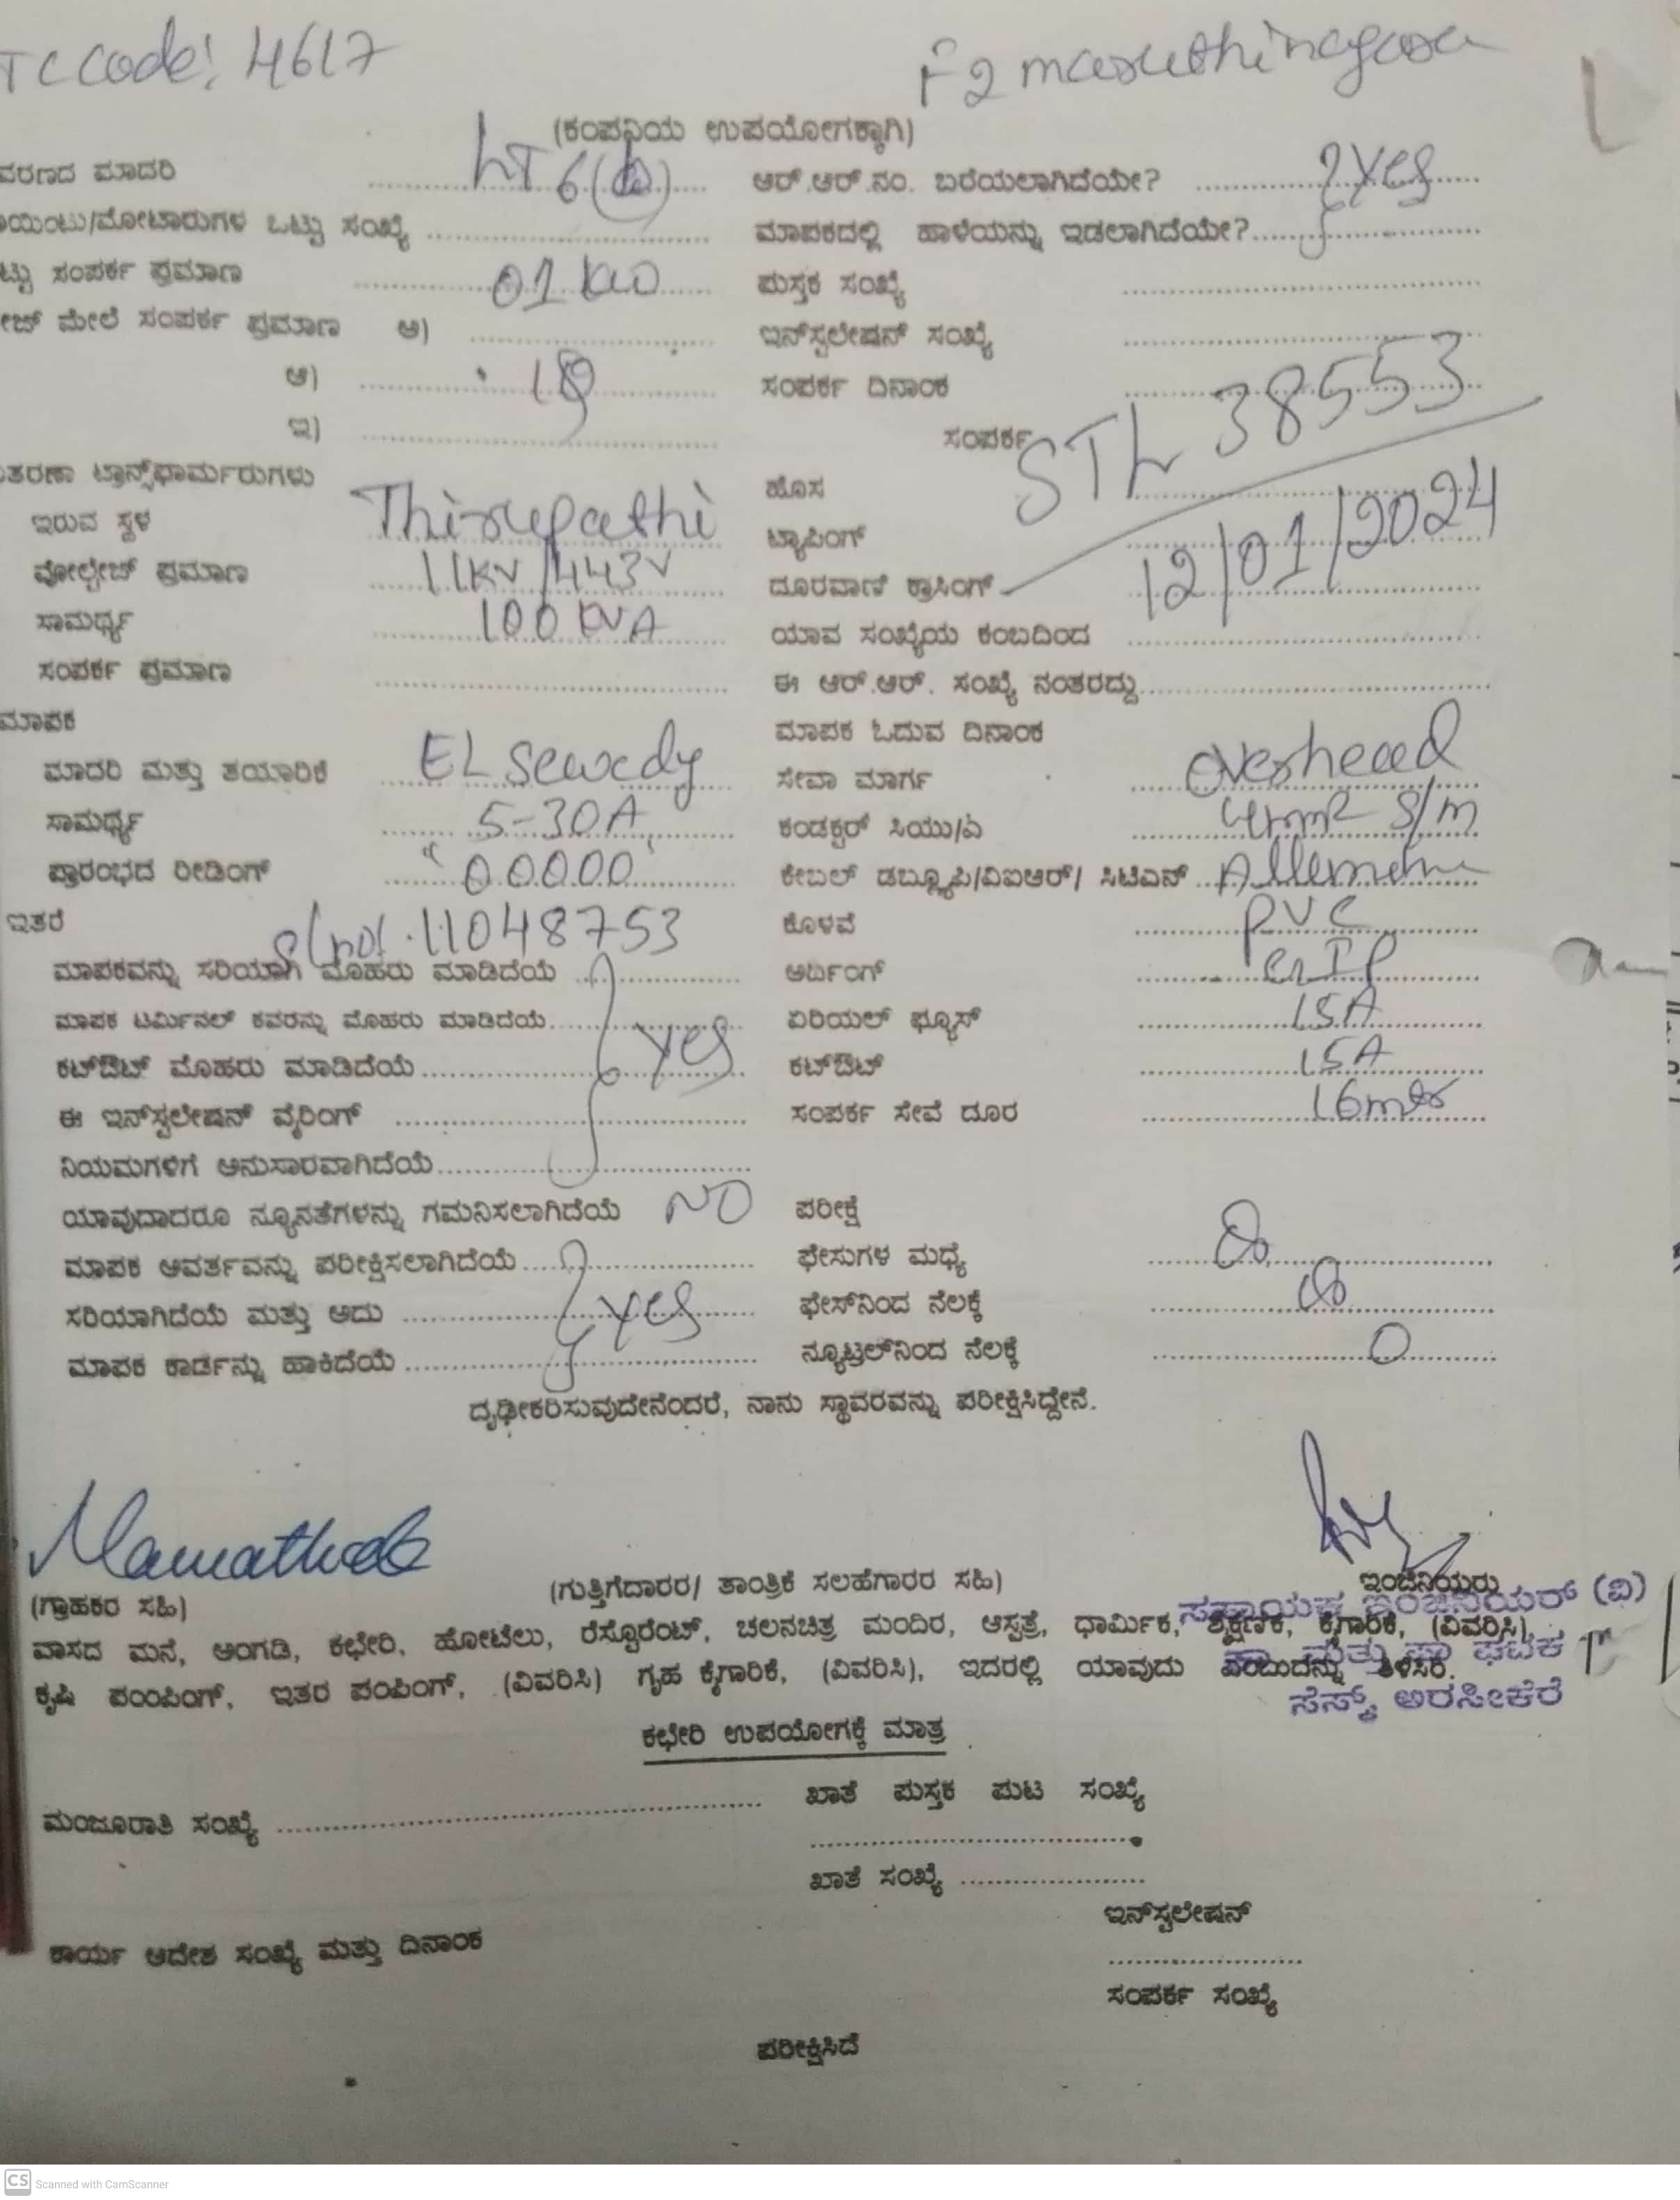 TC Code: 4617
F2 maruthinagara
(ಕಂಪನಿಯ ಉಪಯೋಗಕ್ಕಾಗಿ)
ವರಣದ ಮಾದರಿ LT 6(b) ಆರ್.ಆರ್.ನಂ. ಬರೆಯಲಾಗಿದೆಯೇ? Yes
ಯಿಂಟು/ಮೋಟಾರುಗಳ ಒಟ್ಟು ಸಂಖ್ಯೆ ಮಾಪಕದಲ್ಲಿ ಹಾಳೆಯನ್ನು ಇಡಲಾಗಿದೆಯೇ?
ಟ್ಟು ಸಂಪರ್ಕ ಪ್ರಮಾಣ 01 KW ಪುಸ್ತಕ ಸಂಖ್ಯೆ
ೇಜ್ ಮೇಲೆ ಸಂಪರ್ಕ ಪ್ರಮಾಣ ಅ) ಇನ್‌ಸ್ಟಲೇಷನ್ ಸಂಖ್ಯೆ
ಆ) ಸಂಪರ್ಕ ದಿನಾಂಕ STL 38553
ಇ) ಸಂಪರ್ಕ
ತರಣಾ ಟ್ರಾನ್ಸ್‌ಫಾರ್ಮರುಗಳು ಹೊಸ
ಇರುವ ಸ್ಥಳ Thirupathi ಟ್ಯಾಪಿಂಗ್ 12/01/2024
ವೋಲ್ಟೇಜ್ ಪ್ರಮಾಣ 11KV/443V ದೂರವಾಣಿ ಕ್ರಾಸಿಂಗ್
ಸಾಮರ್ಥ್ಯ 100 KVA ಯಾವ ಸಂಖ್ಯೆಯ ಕಂಬದಿಂದ
ಸಂಪರ್ಕ ಪ್ರಮಾಣ ಈ ಆರ್.ಆರ್. ಸಂಖ್ಯೆ ನಂತರದ್ದು
ಮಾಪಕ ಮಾಪಕ ಓದುವ ದಿನಾಂಕ
ಮಾದರಿ ಮತ್ತು ತಯಾರಿಕೆ EL sewedy ಸೇವಾ ಮಾರ್ಗ overhead
ಸಾಮರ್ಥ್ಯ 5-30A ಕಂಡಕ್ಟರ್ ಸಿಯು/ಎ 4mm2 S/m
ಪ್ರಾರಂಭದ ರೀಡಿಂಗ್ "00000" ಕೇಬಲ್ ಡಬ್ಲ್ಯೂಪಿ/ವಿಐಆರ್/ ಸಿಟಿಎನ್
ಇತರೆ S/no: 11048753 ಕೊಳವೆ PVC
ಮಾಪಕವನ್ನು ಸರಿಯಾಗಿ ಮೊಹರು ಮಾಡಿದೆಯೆ ಅರ್ಥಿಂಗ್ GIP
ಮಾಪಕ ಟರ್ಮಿನಲ್ ಕವರನ್ನು ಮೊಹರು ಮಾಡಿದೆಯೆ ಏರಿಯಲ್ ಫ್ಯೂಸ್ 15A
ಕಟ್‌ಔಟ್ ಮೊಹರು ಮಾಡಿದೆಯೆ Yes ಕಟ್‌ಔಟ್ 15A
ಈ ಇನ್‌ಸ್ಟಲೇಷನ್ ವೈರಿಂಗ್ ಸಂಪರ್ಕ ಸೇವೆ ದೂರ 16mtr
ನಿಯಮಗಳಿಗೆ ಅನುಸಾರವಾಗಿದೆಯೆ
ಯಾವುದಾದರೂ ನ್ಯೂನತೆಗಳನ್ನು ಗಮನಿಸಲಾಗಿದೆಯೆ NO ಪರೀಕ್ಷೆ
ಮಾಪಕ ಆವರ್ತವನ್ನು ಪರೀಕ್ಷಿಸಲಾಗಿದೆಯೆ ಫೇಸುಗಳ ಮಧ್ಯೆ ∞
ಸರಿಯಾಗಿದೆಯೆ ಮತ್ತು ಅದು Yes ಫೇಸ್‌ನಿಂದ ನೆಲಕ್ಕೆ ∞
ಮಾಪಕ ಕಾರ್ಡನ್ನು ಹಾಕಿದೆಯೆ ನ್ಯೂಟ್ರಲ್‌ನಿಂದ ನೆಲಕ್ಕೆ 0
ದೃಢೀಕರಿಸುವುದೇನೆಂದರೆ, ನಾನು ಸ್ಥಾವರವನ್ನು ಪರೀಕ್ಷಿಸಿದ್ದೇನೆ.
(ಗ್ರಾಹಕರ ಸಹಿ) (ಗುತ್ತಿಗೆದಾರರ/ ತಾಂತ್ರಿಕೆ ಸಲಹೆಗಾರರ ಸಹಿ) ಇಂಜಿನಿಯರು
ಸಹಾಯಕ ಇಂಜಿನಿಯರ್ (ವಿ)
ವಾಸದ ಮನೆ, ಅಂಗಡಿ, ಕಛೇರಿ, ಹೋಟೆಲು, ರೆಸ್ಟೊರೆಂಟ್, ಚಲನಚಿತ್ರ ಮಂದಿರ, ಆಸ್ಪತ್ರೆ, ಧಾರ್ಮಿಕ, ಶೈಕ್ಷಣಿಕ, ಕೈಗಾರಿಕೆ, (ವಿವರಿಸಿ),
ಕೃಷಿ ಪಂಂಪಿಂಗ್, ಇತರ ಪಂಪಿಂಗ್, (ವಿವರಿಸಿ) ಗೃಹ ಕೈಗಾರಿಕೆ, (ವಿವರಿಸಿ), ಇದರಲ್ಲಿ ಯಾವುದು ಎಂಬುದನ್ನು ತಿಳಿಸಿರಿ.
ಸೆಸ್ಕ್ ಅರಸೀಕೆರೆ
ಕಛೇರಿ ಉಪಯೋಗಕ್ಕೆ ಮಾತ್ರ
ಮಂಜೂರಾತಿ ಸಂಖ್ಯೆ ಖಾತೆ ಪುಸ್ತಕ ಪುಟ ಸಂಖ್ಯೆ
ಖಾತೆ ಸಂಖ್ಯೆ
ಇನ್‌ಸ್ಟಲೇಷನ್
ಕಾರ್ಯ ಆದೇಶ ಸಂಖ್ಯೆ ಮತ್ತು ದಿನಾಂಕ
ಸಂಪರ್ಕ ಸಂಖ್ಯೆ
ಪರೀಕ್ಷಿಸಿದೆ
CS Scanned with CamScanner